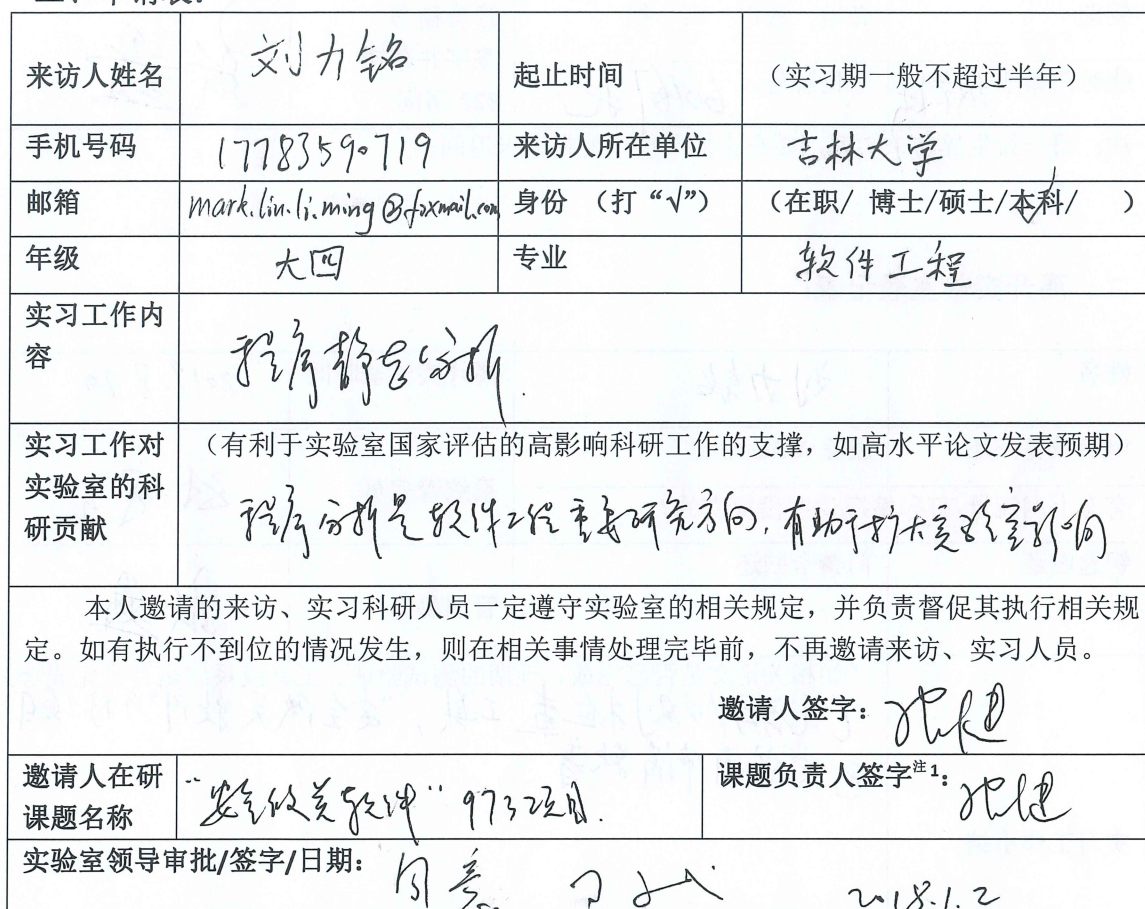 来访人姓名 刘力铭 起止时间 （实习期一般不超过半年）
手机号码 17783590719 来访人所在单位 吉林大学
邮箱 mark.liu.li.ming@foxmail.com 身份 （打“√”） （在职/ 博士/硕士/本科/ ）
年级 大四 专业 软件工程
实习工作内
容
程序静态分析.
实习工作对
实验室的科
研贡献
（有利于实验室国家评估的高影响科研工作的支撑，如高水平论文发表预期）
程序分析是软件工程重要研究方向，有助于扩大实验室影响
本人邀请的来访、实习科研人员一定遵守实验室的相关规定，并负责督促其执行相关规
定。如有执行不到位的情况发生，则在相关事情处理完毕前，不再邀请来访、实习人员。
邀请人签字：
邀请人在研
课题名称
“安全攸关软件” 973项目.
课题负责人签字注1：
实验室领导审批/签字/日期： 同意 2018.1.2